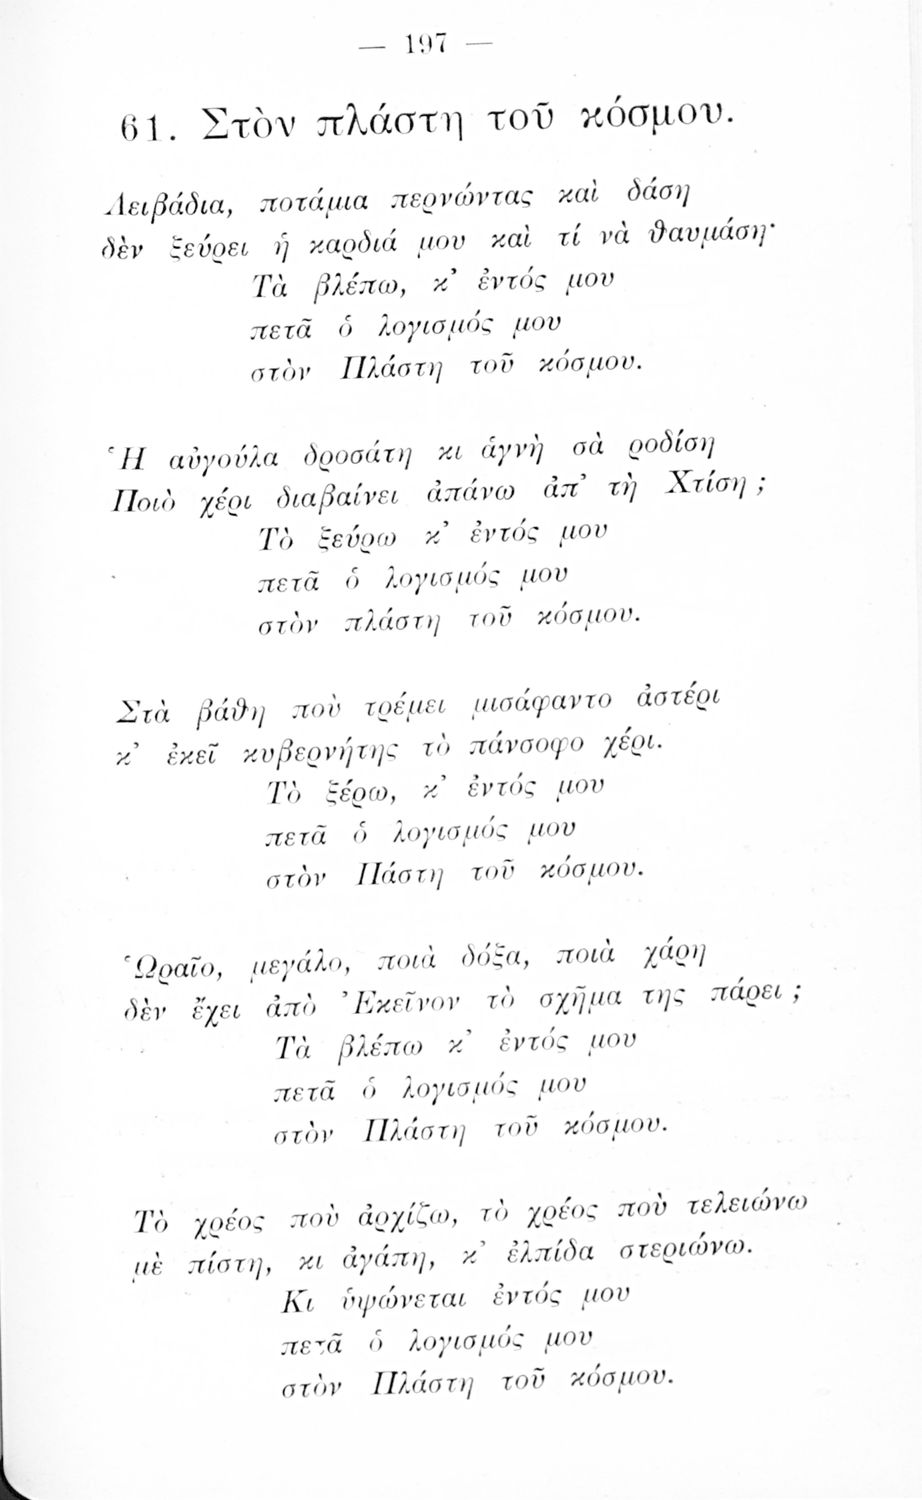 — 197 —
61. Στὸν πλάστη τοῦ κόσμου.
Λειβάδια, ποτάμια περνώντας καὶ δάση
δὲν ξεύρει ἡ καρδιά μου καὶ τί νὰ θαυμάση·
Τὰ βλέπω, κ’ ἐντός μου
πετᾶ ὁ λογισμός μου
στὸν Πλάστη τοῦ κόσμου.
Ἡ αὐγούλα δροσάτη κι ἁγνὴ σὰ ροδίση
Ποιὸ χέρι διαβαίνει ἀπάνω ἀπ’ τὴ Χτίση ;
Τὸ ξεύρω κ’ ἐντός μου
πετᾶ ὁ λογισμός μου
στὸν πλάστη τοῦ κόσμου.
Στὰ βάθη ποὺ τρέμει μισάφαντο ἀστέρι
κ’ ἐκεῖ κυβερνήτης τὸ πάνσοφο χέρι.
Τὸ ξέρω, κ’ ἐντός μου
πετᾶ ὁ λογισμός μου
στὸν Πάστη τοῦ κόσμου.
Ὡραῖο, μεγάλο, ποιὰ δόξα, ποιὰ χάρη
δὲν ἔχει ἀπὸ Ἐκεῖνον τὸ σχῆμα της πάρει ;
Τὰ βλέπω κ’ ἐντός μου
πετᾶ ὁ λογισμός μου
στὸν Πλάστη τοῦ κόσμου.
Τὸ χρέος ποὺ ἀρχίζω, τὸ χρέος ποὺ τελειώνω
μὲ πίστη, κι ἀγάπη, κ’ ἐλπίδα στεριώνω.
Κι ὑψώνεται ἐντός μου
πετᾶ ὁ λογισμός μου
στὸν Πλάστη τοῦ κόσμου.